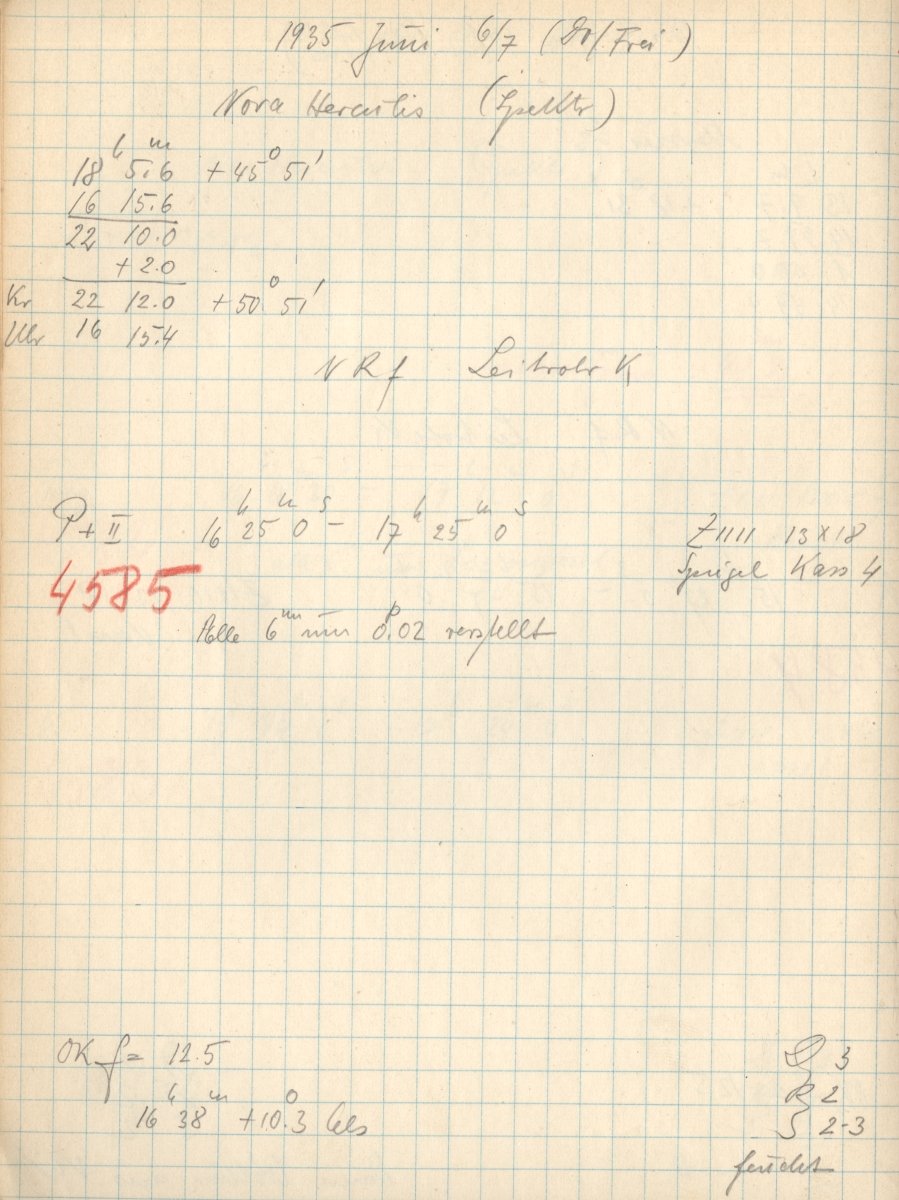 1935 Juni 6/7 (Do/Frei)
Nova Herculis (Spektr)
18ʰ 5.6ᵐ +45° 51'
16 15.6
22 10.0
+2.0
Kr 22 12.0 +50° 51'
Uhr 16 15.4
N R f Leitrohr K
P+II 16ʰ 25ᵐ 0ˢ – 17ʰ 25ᵐ 0ˢ Z 1111 13x18
4585 Spiegel Kass 4
Alle 6ᵐ um 0ᵖ.02 verstellt
OK f = 12.5
16ʰ 38ᵐ +10°.3 Cels
3
R 2
S 2-3
feucht